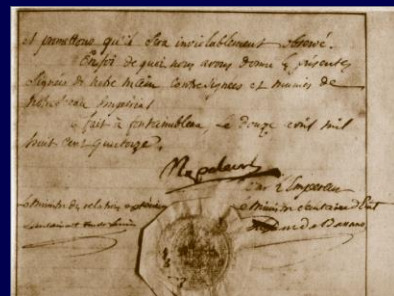 et promettons qu'il sera inviolablement observé.
En foi de quoi nous avons donné les présentes
signées de notre main, contresignées et munies de
notre sceau impérial
fait à fontainebleau, le douze avril mil
huit cent quatorze.
Napoleon
Par l'Empereur
Le Ministre des relations
Le Ministre d'Etat